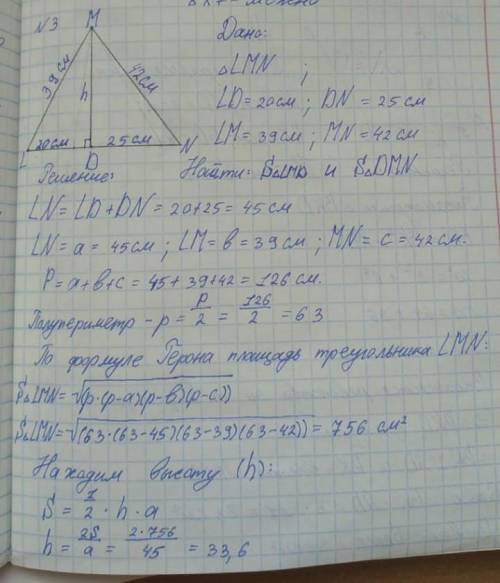 N3
M
39см
42см
h
20см
25см
L
D
N
Дано:
△LMN ;
LD = 20см ; DN = 25 см
LM = 39см ; MN = 42 см
Найти: S△LMD и S△DMN
Решение:
LN = LD + DN = 20 + 25 = 45 см
LN = a = 45см ; LM = в = 39см ; MN = c = 42см.
P = a + в + c = 45 + 39 + 42 = 126 см.
Полупериметр - p = P/2 = 126/2 = 63
По формуле Герона площадь треугольника LMN:
S△LMN = √(p·(p-a)(p-в)(p-c))
S△LMN = √(63·(63-45)(63-39)(63-42)) = 756 см²
Находим высоту (h):
S = 1/2 · h · a
h = 2S/a = 2·756/45 = 33,6